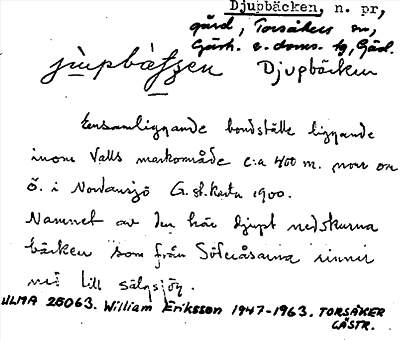 Djupbäcken, n. pr,
gård, Torsåkers sn,
Gästr. ö. doms. tg, Gävl.
Djupbäcken
Ensamliggande bondställe liggande
inom Valls markområde c:a 400 m. norr om
Ö. i Nordansjö G. st. karta 1900.
Namnet av den här djupt nedskurna
bäcken som från Söderåsarna rinner
ned till
ULMA 25063. William Eriksson 1947-1963. TORSÅKER
GÄSTR.